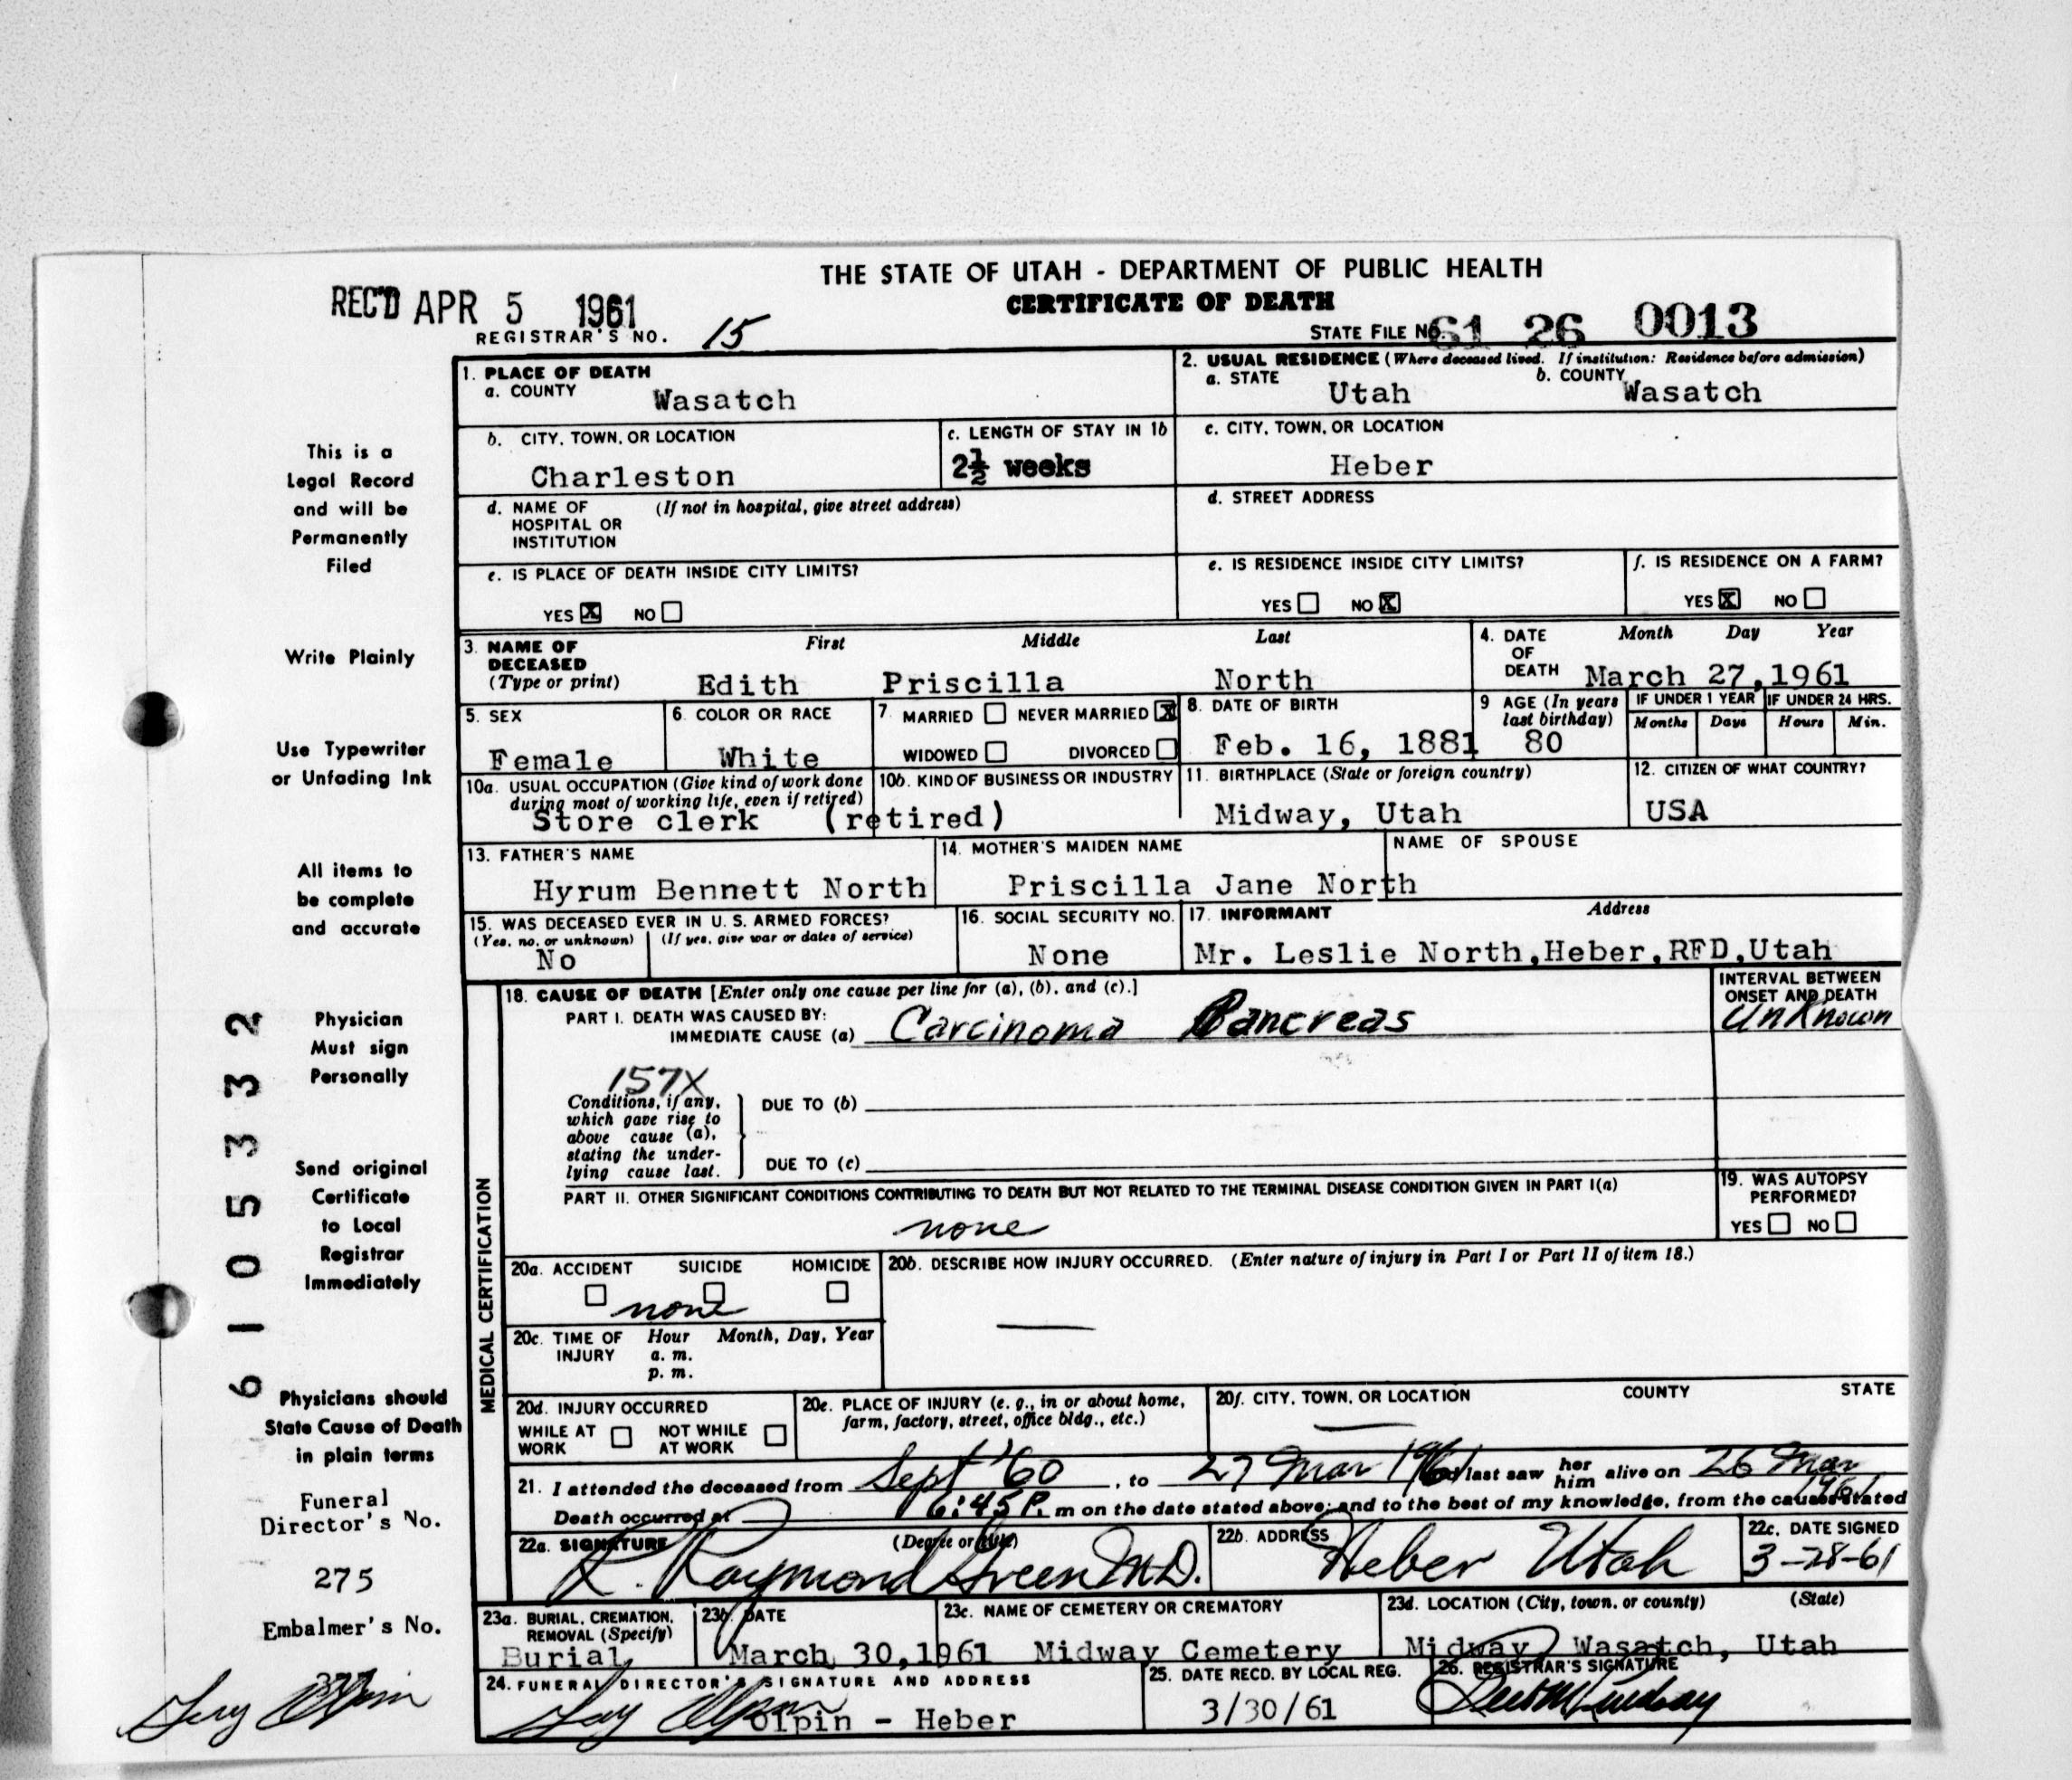 THE STATE OF UTAH - DEPARTMENT OF PUBLIC HEALTH
CERTIFICATE OF DEATH
REC'D APR 5 1961
REGISTRAR'S NO. 15
STATE FILE NO. 61 26 0013
1. PLACE OF DEATH
a. COUNTY Wasatch
2. USUAL RESIDENCE (Where deceased lived. If institution: Residence before admission)
a. STATE Utah b. COUNTY Wasatch
b. CITY, TOWN, OR LOCATION Charleston
c. LENGTH OF STAY IN 1b 2½ weeks
c. CITY, TOWN, OR LOCATION Heber
d. NAME OF HOSPITAL OR INSTITUTION (If not in hospital, give street address)
d. STREET ADDRESS
e. IS PLACE OF DEATH INSIDE CITY LIMITS?
YES X NO
e. IS RESIDENCE INSIDE CITY LIMITS?
YES NO X
f. IS RESIDENCE ON A FARM?
YES X NO
3. NAME OF DECEASED (Type or print)
First Middle Last
Edith Priscilla North
4. DATE OF DEATH Month Day Year
March 27, 1961
5. SEX Female
6. COLOR OR RACE White
7. MARRIED NEVER MARRIED X
WIDOWED DIVORCED
8. DATE OF BIRTH Feb. 16, 1881
9 AGE (In years last birthday) 80
IF UNDER 1 YEAR Months Days
IF UNDER 24 HRS. Hours Min.
10a. USUAL OCCUPATION (Give kind of work done during most of working life, even if retired)
Store clerk (retired)
10b. KIND OF BUSINESS OR INDUSTRY
11. BIRTHPLACE (State or foreign country)
Midway, Utah
12. CITIZEN OF WHAT COUNTRY?
USA
13. FATHER'S NAME
Hyrum Bennett North
14. MOTHER'S MAIDEN NAME
Priscilla Jane North
NAME OF SPOUSE
15. WAS DECEASED EVER IN U.S. ARMED FORCES?
(Yes, no, or unknown) (If yes, give war or dates of service)
No
16. SOCIAL SECURITY NO.
None
17. INFORMANT Address
Mr. Leslie North, Heber, RFD, Utah
MEDICAL CERTIFICATION
18. CAUSE OF DEATH [Enter only one cause per line for (a), (b), and (c).]
PART I. DEATH WAS CAUSED BY:
IMMEDIATE CAUSE (a) Carcinoma Pancreas
INTERVAL BETWEEN ONSET AND DEATH
Unknown
157X
Conditions, if any, which gave rise to above cause (a), stating the underlying cause last.
DUE TO (b)
DUE TO (c)
PART II. OTHER SIGNIFICANT CONDITIONS CONTRIBUTING TO DEATH BUT NOT RELATED TO THE TERMINAL DISEASE CONDITION GIVEN IN PART I(a)
none
19. WAS AUTOPSY PERFORMED?
YES NO
20a. ACCIDENT SUICIDE HOMICIDE
none
20b. DESCRIBE HOW INJURY OCCURRED. (Enter nature of injury in Part I or Part II of item 18.)
20c. TIME OF INJURY Hour a. m. p. m. Month, Day, Year
20d. INJURY OCCURRED
WHILE AT WORK NOT WHILE AT WORK
20e. PLACE OF INJURY (e. g., in or about home, farm, factory, street, office bldg., etc.)
20f. CITY, TOWN, OR LOCATION COUNTY STATE
21. I attended the deceased from Sept '60, to 27 Mar 1961 and last saw her him alive on 26 Mar 1961
Death occurred at 6:45 P. m on the date stated above; and to the best of my knowledge, from the causes stated
22a. SIGNATURE (Degree or title)
R. Raymond Green M.D.
22b. ADDRESS
Heber Utah
22c. DATE SIGNED
3-28-61
23a. BURIAL, CREMATION, REMOVAL (Specify)
Burial
23b. DATE
March 30, 1961
23c. NAME OF CEMETERY OR CREMATORY
Midway Cemetery
23d. LOCATION (City, town, or county) (State)
Midway, Wasatch, Utah
24. FUNERAL DIRECTOR'S SIGNATURE AND ADDRESS
Olpin - Heber
25. DATE RECD. BY LOCAL REG.
3/30/61
26. REGISTRAR'S SIGNATURE
This is a
Legal Record
and will be
Permanently
Filed
Write Plainly
Use Typewriter
or Unfading Ink
All items to
be complete
and accurate
Physician
Must sign
Personally
Send original
Certificate
to Local
Registrar
Immediately
Physicians should
State Cause of Death
in plain terms
Funeral
Director's No.
275
Embalmer's No.
6105332